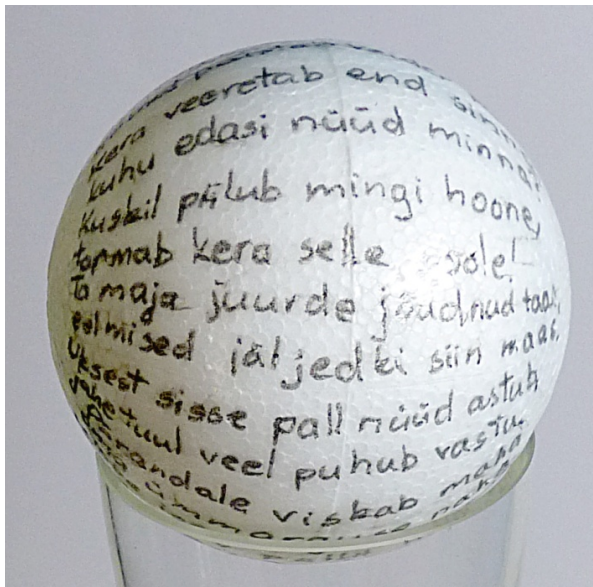 kera veeretab end sinna
kuhu edasi nüüd minna?
Kuskil piilub mingi hoone,
tormab kera selle poole!
Ta maja juurde jõudnud taas,
eelmised jäljedki siin maas.
Uksest sisse pall nüüd astub,
vahetuul veel puhub vastu.
Parandale viskab maha